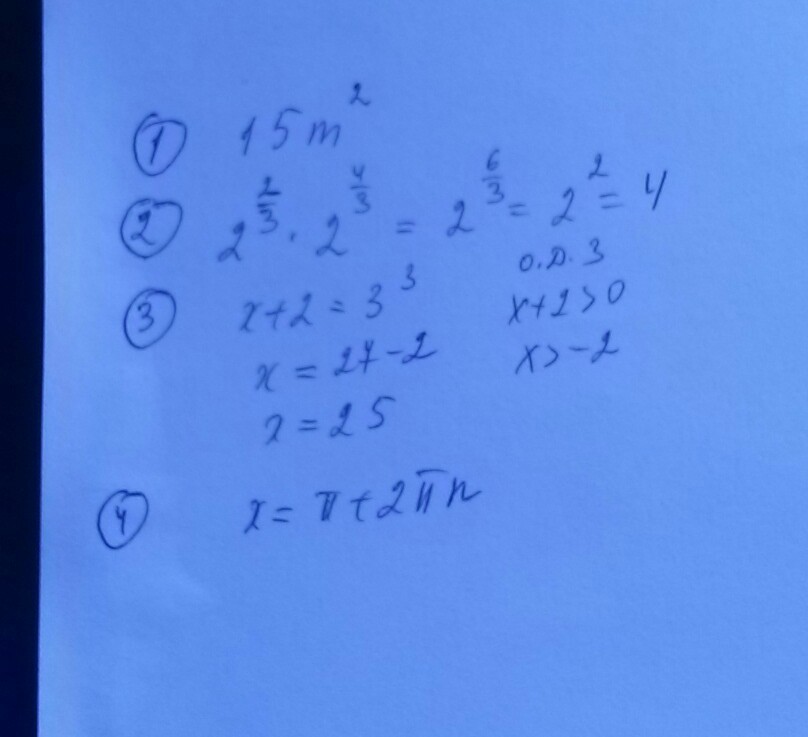 ① 15m²
② 2^(2/3) · 2^(4/3) = 2^(6/3) = 2² = 4
③ x+2 = 3³ о.д.з
x = 27-2 x+2>0
x = 25 x>-2
④ x = π+2πn